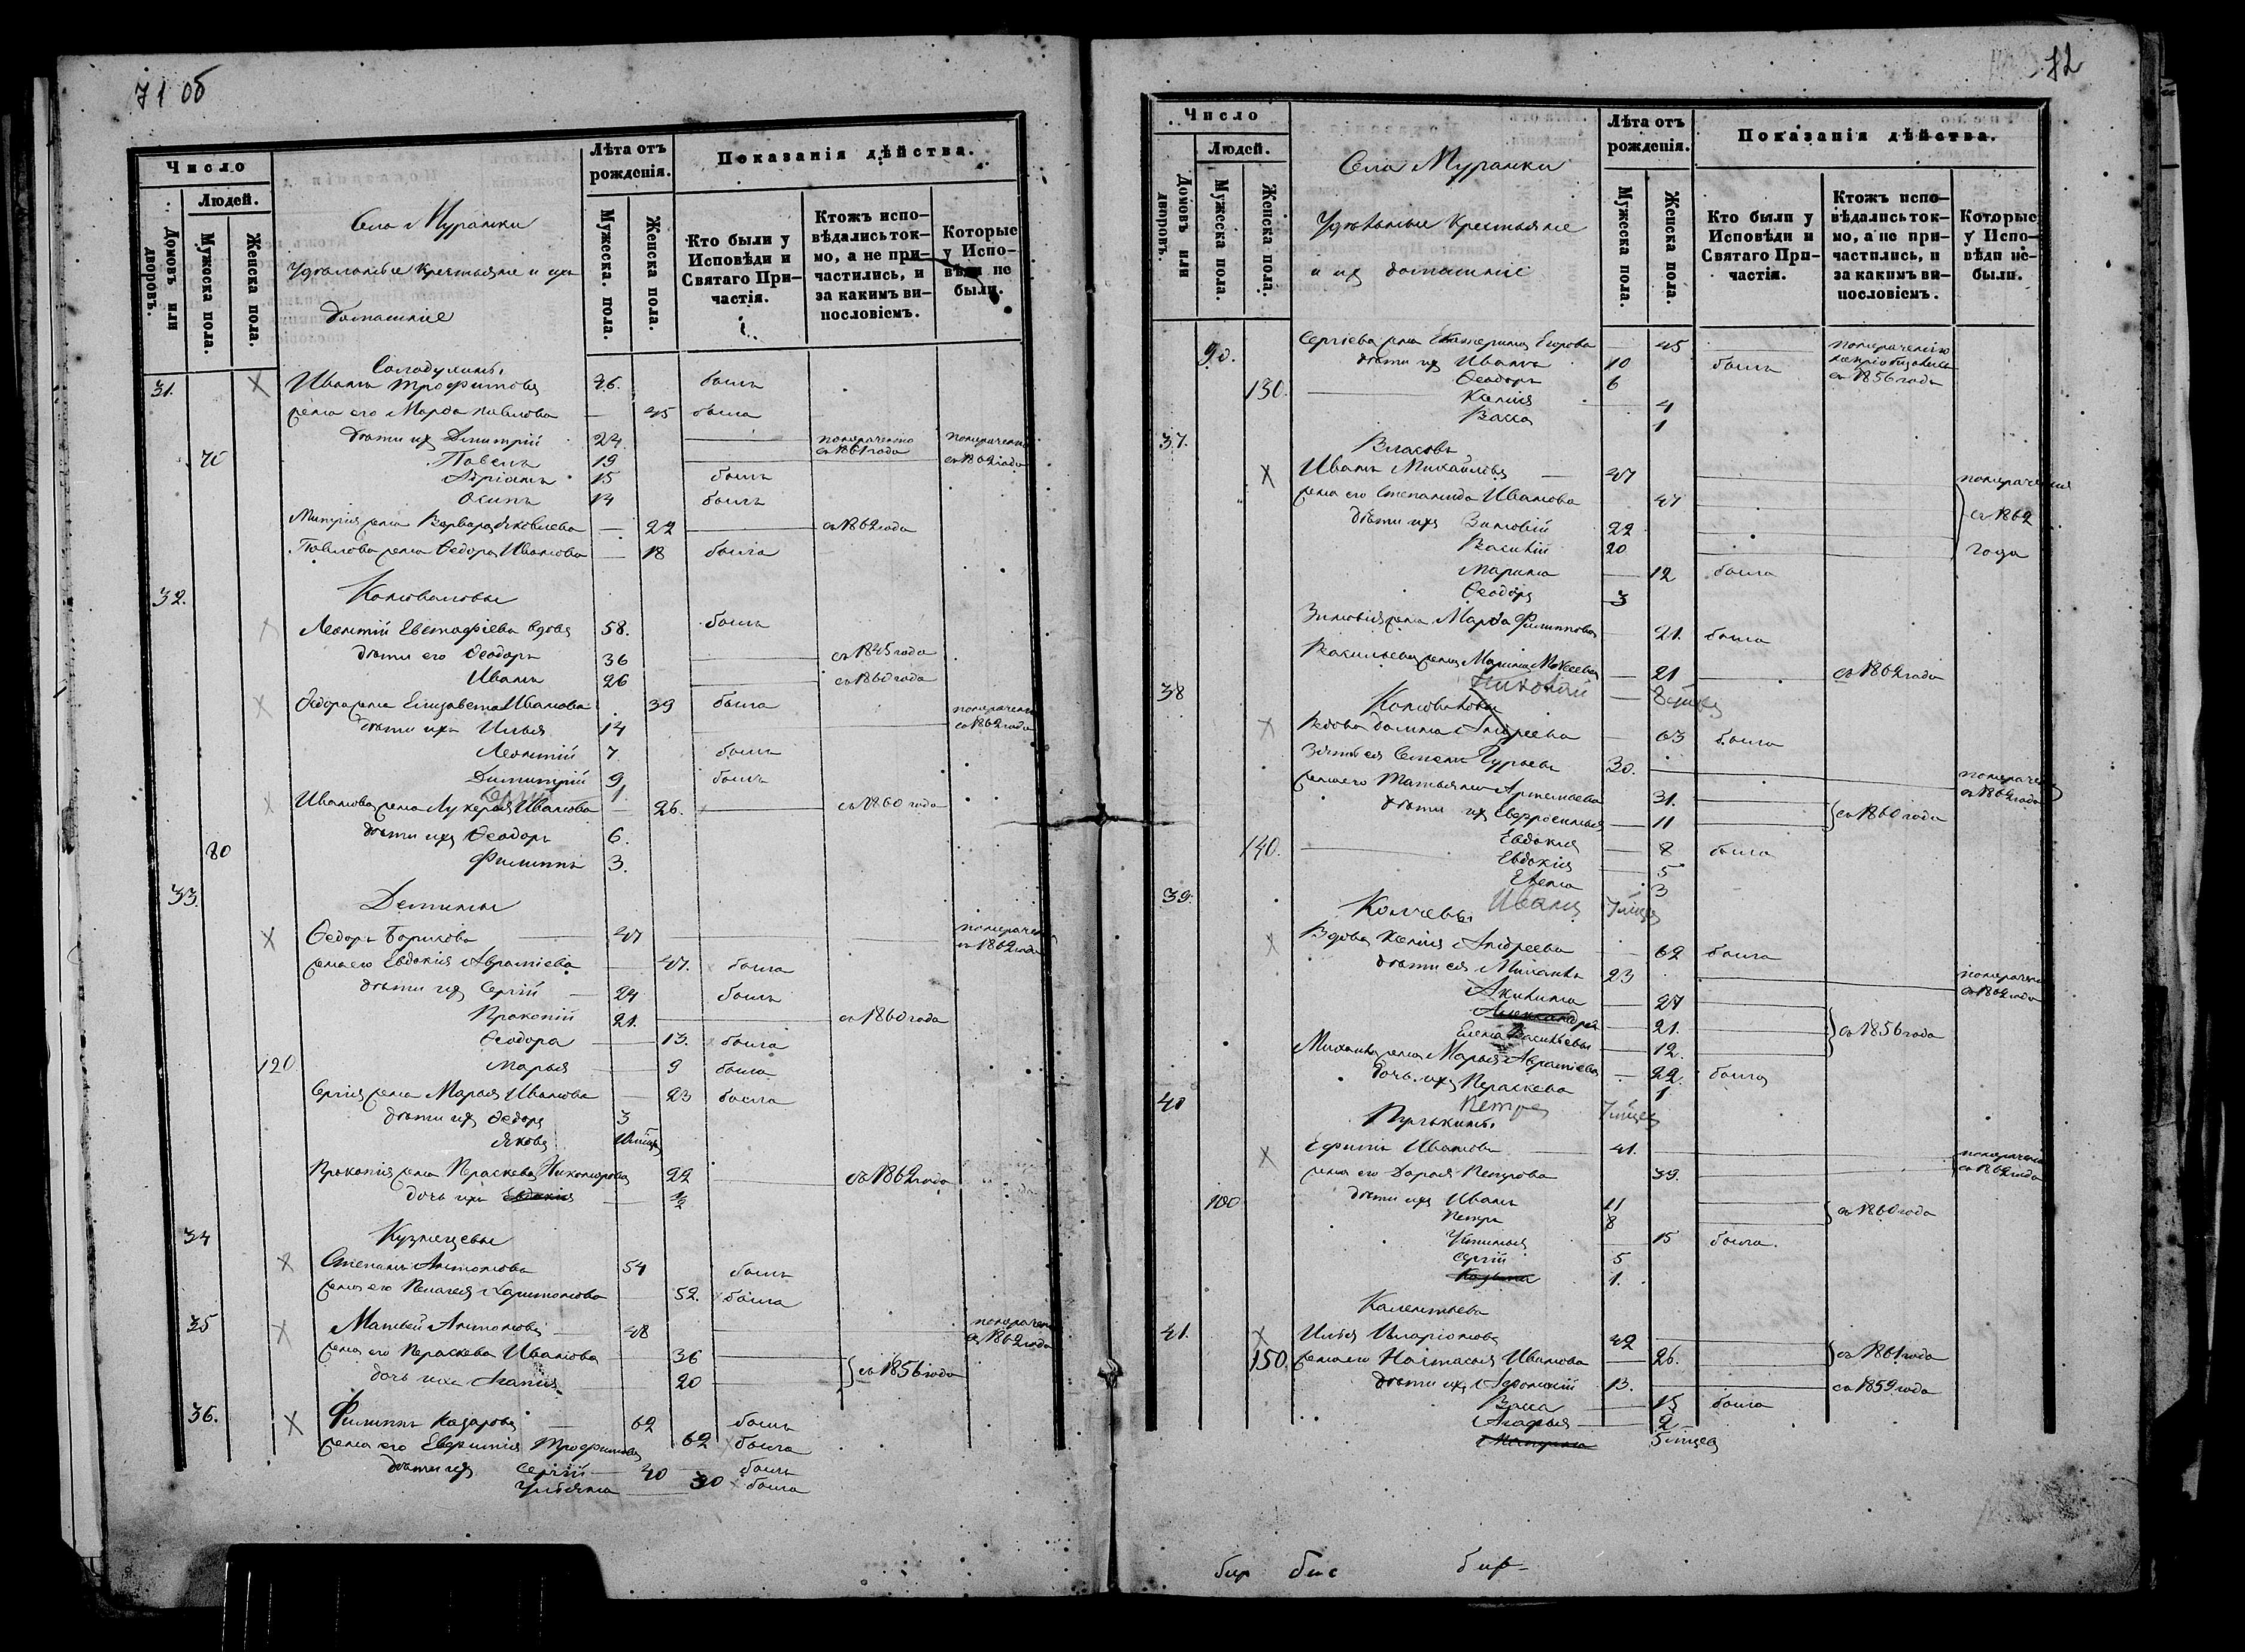 71 об
Число
Людей.
Домовъ или дворовъ.
Мужеска пола.
Женска пола.
Села Муранки
Удѣльные крестьяне и ихъ
домашніе
Лѣта отъ рожденія.
Мужеска пола.
Женска пола.
Показанія дѣйства.
Кто были у Исповѣди и Святаго Причастія.
Ктожъ исповѣдались токмо, а не причастились, и за какимъ винословіемъ.
Которые у Исповѣди не были.
31. Иванъ Трофимовъ 46. былъ
жена его Марѳа Павлова — 45 была
дѣти ихъ Дмитрій 24 — съ 1861 года
Павелъ 19 — съ 1862 года
Адріанъ 15 былъ
Осипъ 14 былъ
жена Варвара Яковлева — 22 — съ 1862 года
Павлова жена Ѳедора Иванова — 18 была
32. Коноваловы
Леонтій Евстафіевъ вдовъ 58. былъ
дѣти его Ѳеодоръ 36 — съ 1845 года
Иванъ 26 — съ 1860 года
Ѳедора жена Елизавета Иванова 39 была
дѣти ихъ Илья 14 — съ 1862 года
Леонтій 7. былъ
Димитрій 9 былъ
1.
Иванова жена Лукерья Иванова — 26. — съ 1860 года
дѣти ихъ Ѳеодоръ 6.
80 Филиппъ 3.
33. Демины
Ѳедоръ Борисовъ — 47 — съ 1862 года
жена его Евдокія — 47. была
дѣти ихъ Сергій — 24 былъ
Прокопій 21. — съ 1860 года
Ѳеодора — 13. была
120 Марья — 9 была
Сергія жена Марья Иванова — 23 была
дѣти ихъ Ѳедоръ 3
Яковъ
Прокопія жена Параскева — 22 — съ 1862 года
дочь ихъ Евдокія — 1/2
34 Кузнецовы
Степанъ Антоновъ 54 былъ
жена его Пелагея Харитонова 52. была
35 Матвей Антоновъ — 48 — съ 1862 года
жена его Параскева Иванова — 36
дочь ихъ Агапія — 20 — съ 1856 года
36. Филиппъ Назаровъ — 62 былъ
жена его Евфимія Трофимова 62 была
дѣти ихъ Сергій — 40 былъ
Ульяна — 30 была
72
Число
Людей.
Домовъ или дворовъ.
Мужеска пола.
Женска пола.
Села Муранки
Удѣльные крестьяне
и ихъ домашніе
Лѣта отъ рожденія.
Мужеска пола.
Женска пола.
Показанія дѣйства.
Кто были у Исповѣди и Святаго Причастія.
Ктожъ исповѣдались токмо, а не причастились, и за какимъ винословіемъ.
Которые у Исповѣди не были.
Сергіева жена Екатерина Егорова — 45
90. дѣти ихъ Иванъ 10 былъ съ 1856 года
Ѳеодоръ 6
130. — Ксенія — 4
Васса 1
37. Власовы
Иванъ Михайловъ — 47
жена его Степанида Иванова 47 съ 1862
дѣти ихъ Зиновій 22
Василій 20 года
Марина — 12 была
Ѳеодоръ 3
Зиновія жена Марѳа Филиппова — 21. была
Васильева жена Марина — 21 — съ 1862 года
Николай
38 Коноваловы
Вдова Домна Андреева — 63 была
Зять ея Семенъ Гурьевъ 30. — съ 1862 года
жена его Татьяна Артемьева 31.
дѣти ихъ Евфросинья — 11 съ 1860 года
140. — Евдокія — 8 была
Евдокія — 5
Елена 3
39. Иванъ
Вдова Ксенія Андреева — 62 была
дѣти ея Михаилъ 23 — съ 1862 года
Акилина — 27
Александра — 21. съ 1856 года
Елена Васильевы — 12.
Михаила жена Марья — 22. была
дочь ихъ Параскева 1
40 Петръ
Ефимъ Ивановъ — 41. — съ 1862 года
жена его Дарья Петрова 39.
100 дѣти ихъ Иванъ 11 съ 1860 года
Петръ 8
Устинья 15 была.
Сергій 5
1.
Калентьевы
41. Илья Иларіоновъ 42
150. жена его Настасья Иванова — 26. съ 1861 года
дѣти ихъ Афонасій 13. — съ 1859 года
Васса — 15 была
Агафья — 2
Матрена 5 мѣсяцъ